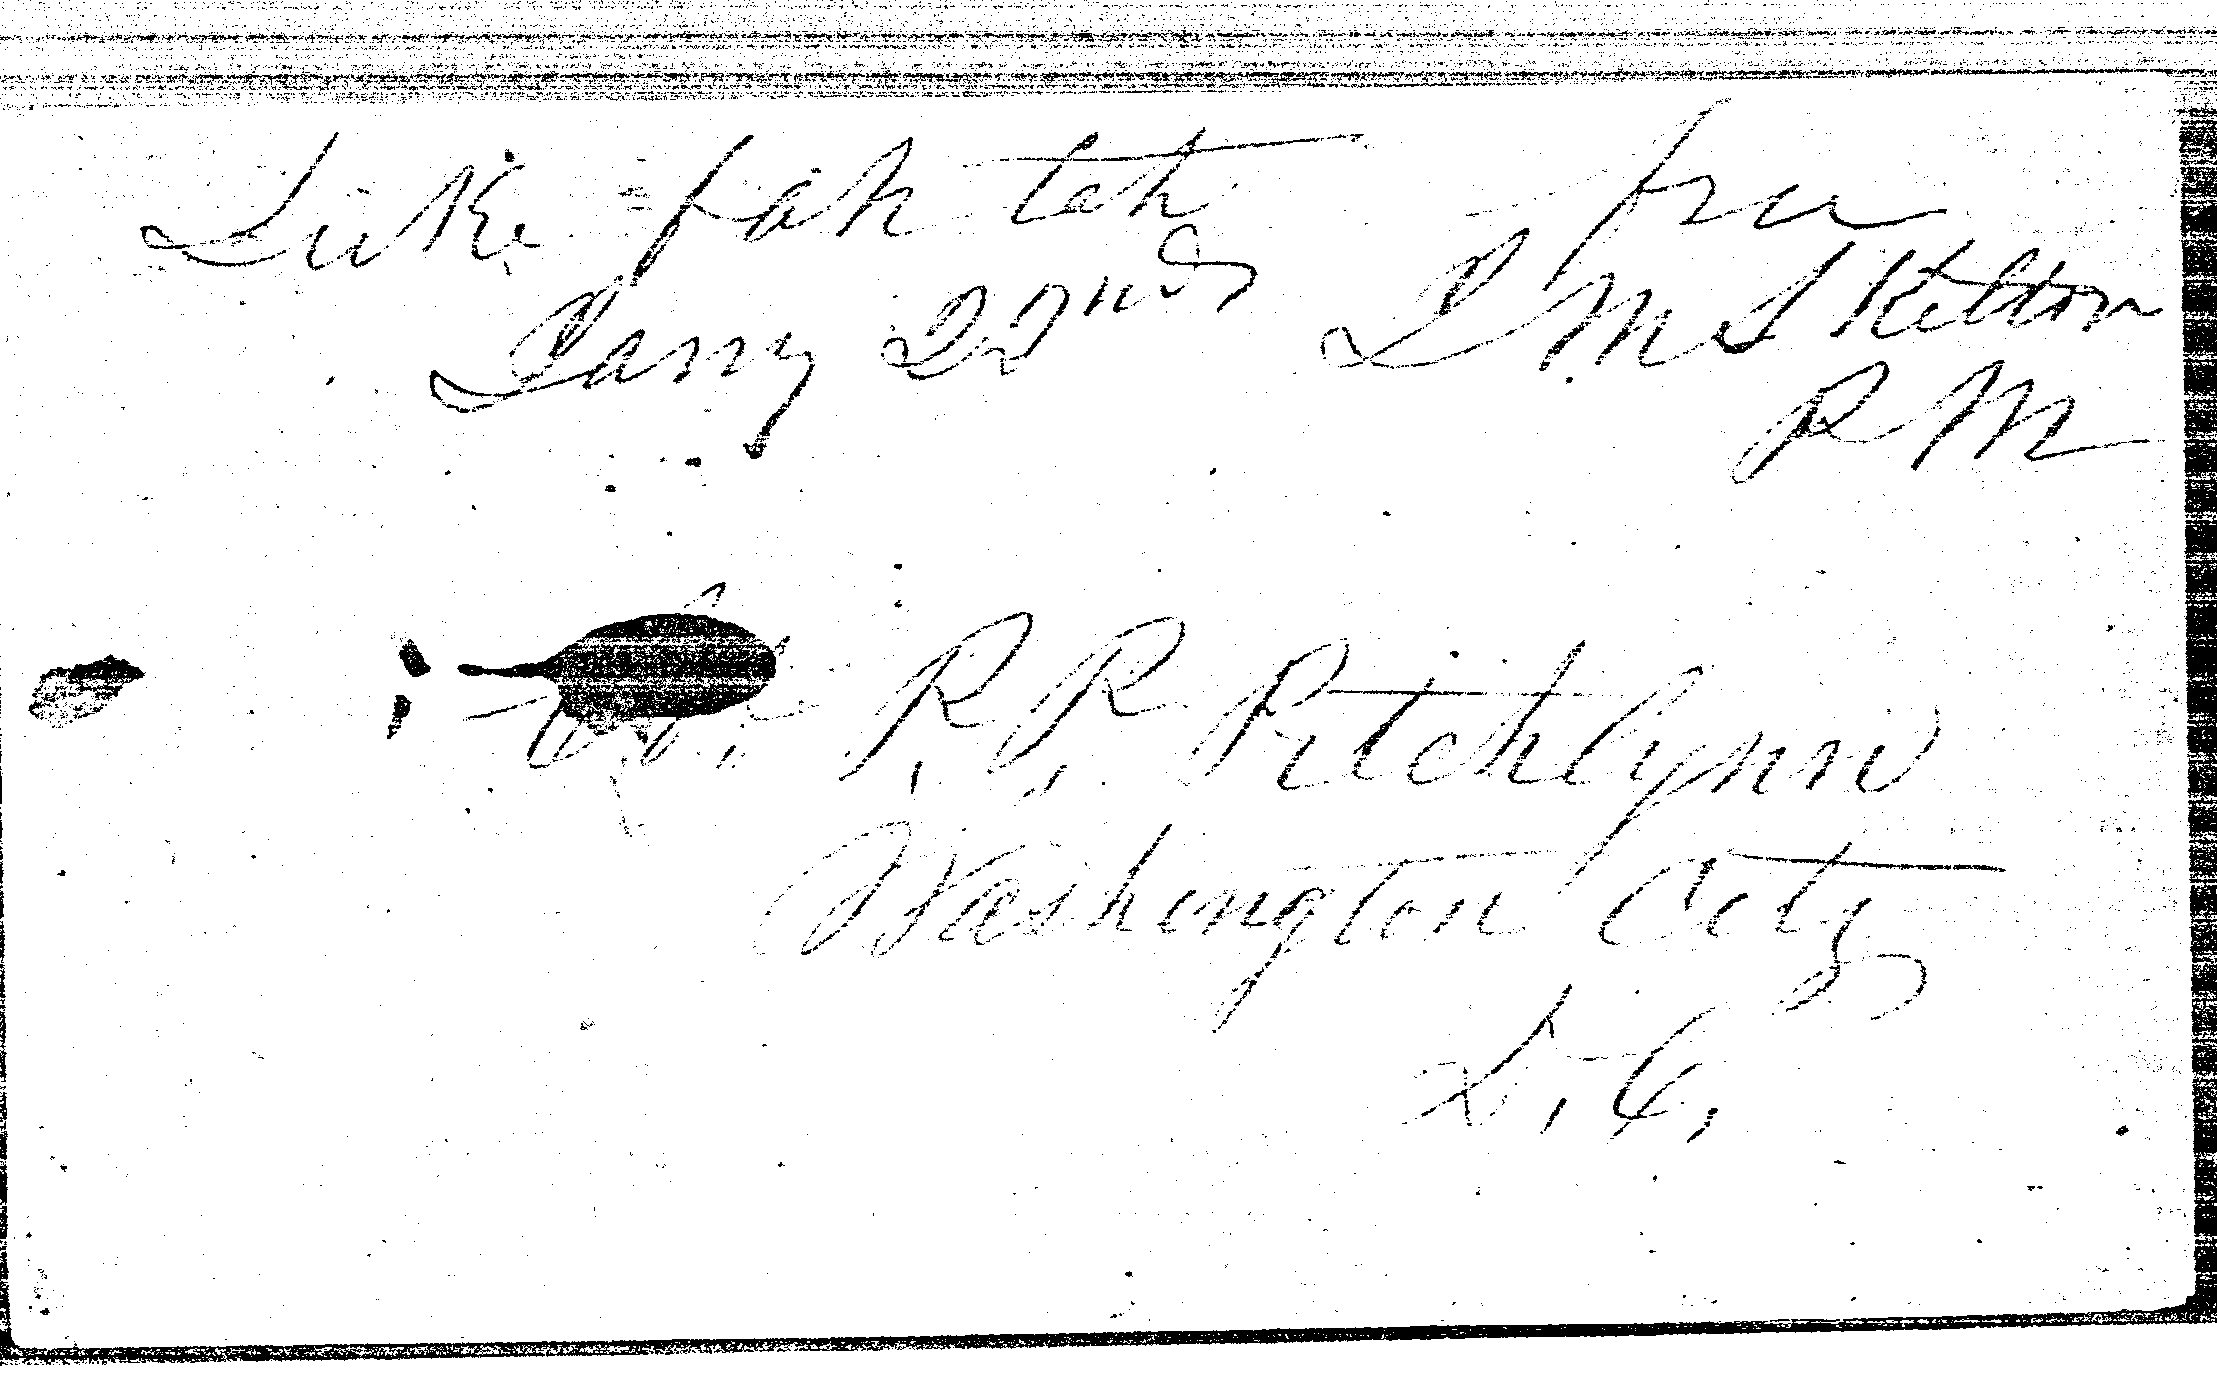 Luke fah tah free
Jany 22nd M Skelton
P M
P. P. Pitchlynn
Washington City
D. C.